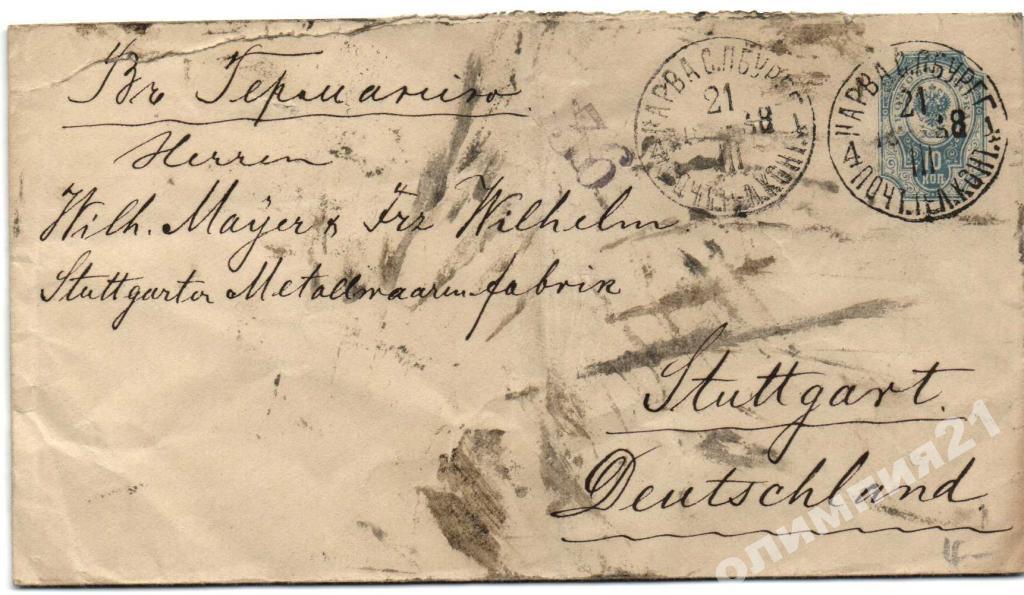 Въ Германiю
Herren
Wilh. Mayer & Frz Wilhelm
Stuttgarter Metallwaarenfabrik
Stuttgart.
Deutschland
36
НАРВА С.ПБУРГ
21
II
НАРВА С.ПБУРГ.Г.
21
II
4
10
КОП
олимпия21